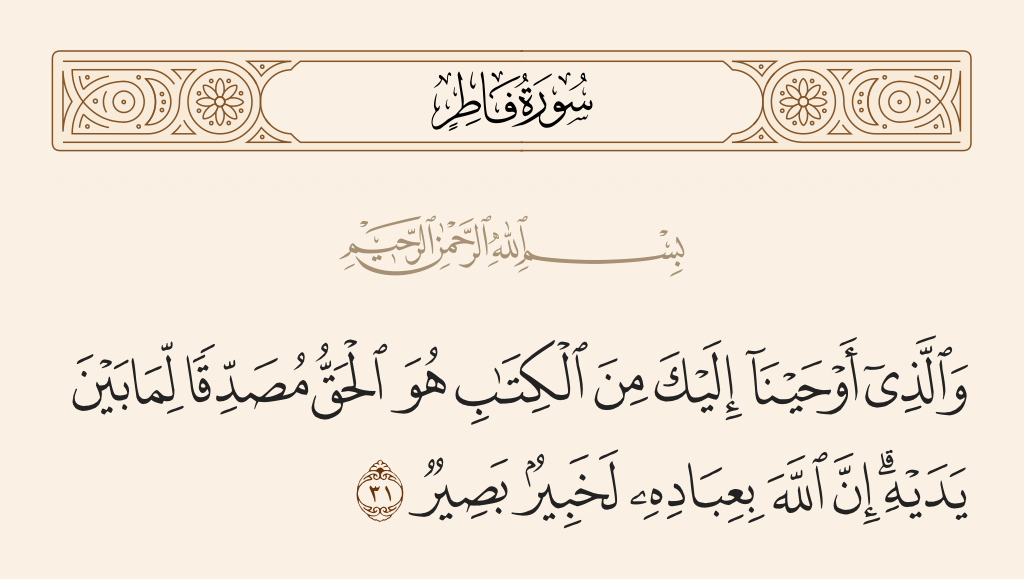 سُورَةُ فَاطِرٍ
بِسْمِ ٱللَّهِ ٱلرَّحْمَٰنِ ٱلرَّحِيمِ
وَٱلَّذِىٓ أَوْحَيْنَآ إِلَيْكَ مِنَ ٱلْكِتَـٰبِ هُوَ ٱلْحَقُّ مُصَدِّقًا لِّمَا بَيْنَ
يَدَيْهِ ۗ إِنَّ ٱللَّهَ بِعِبَادِهِۦ لَخَبِيرٌۢ بَصِيرٌ ٣١